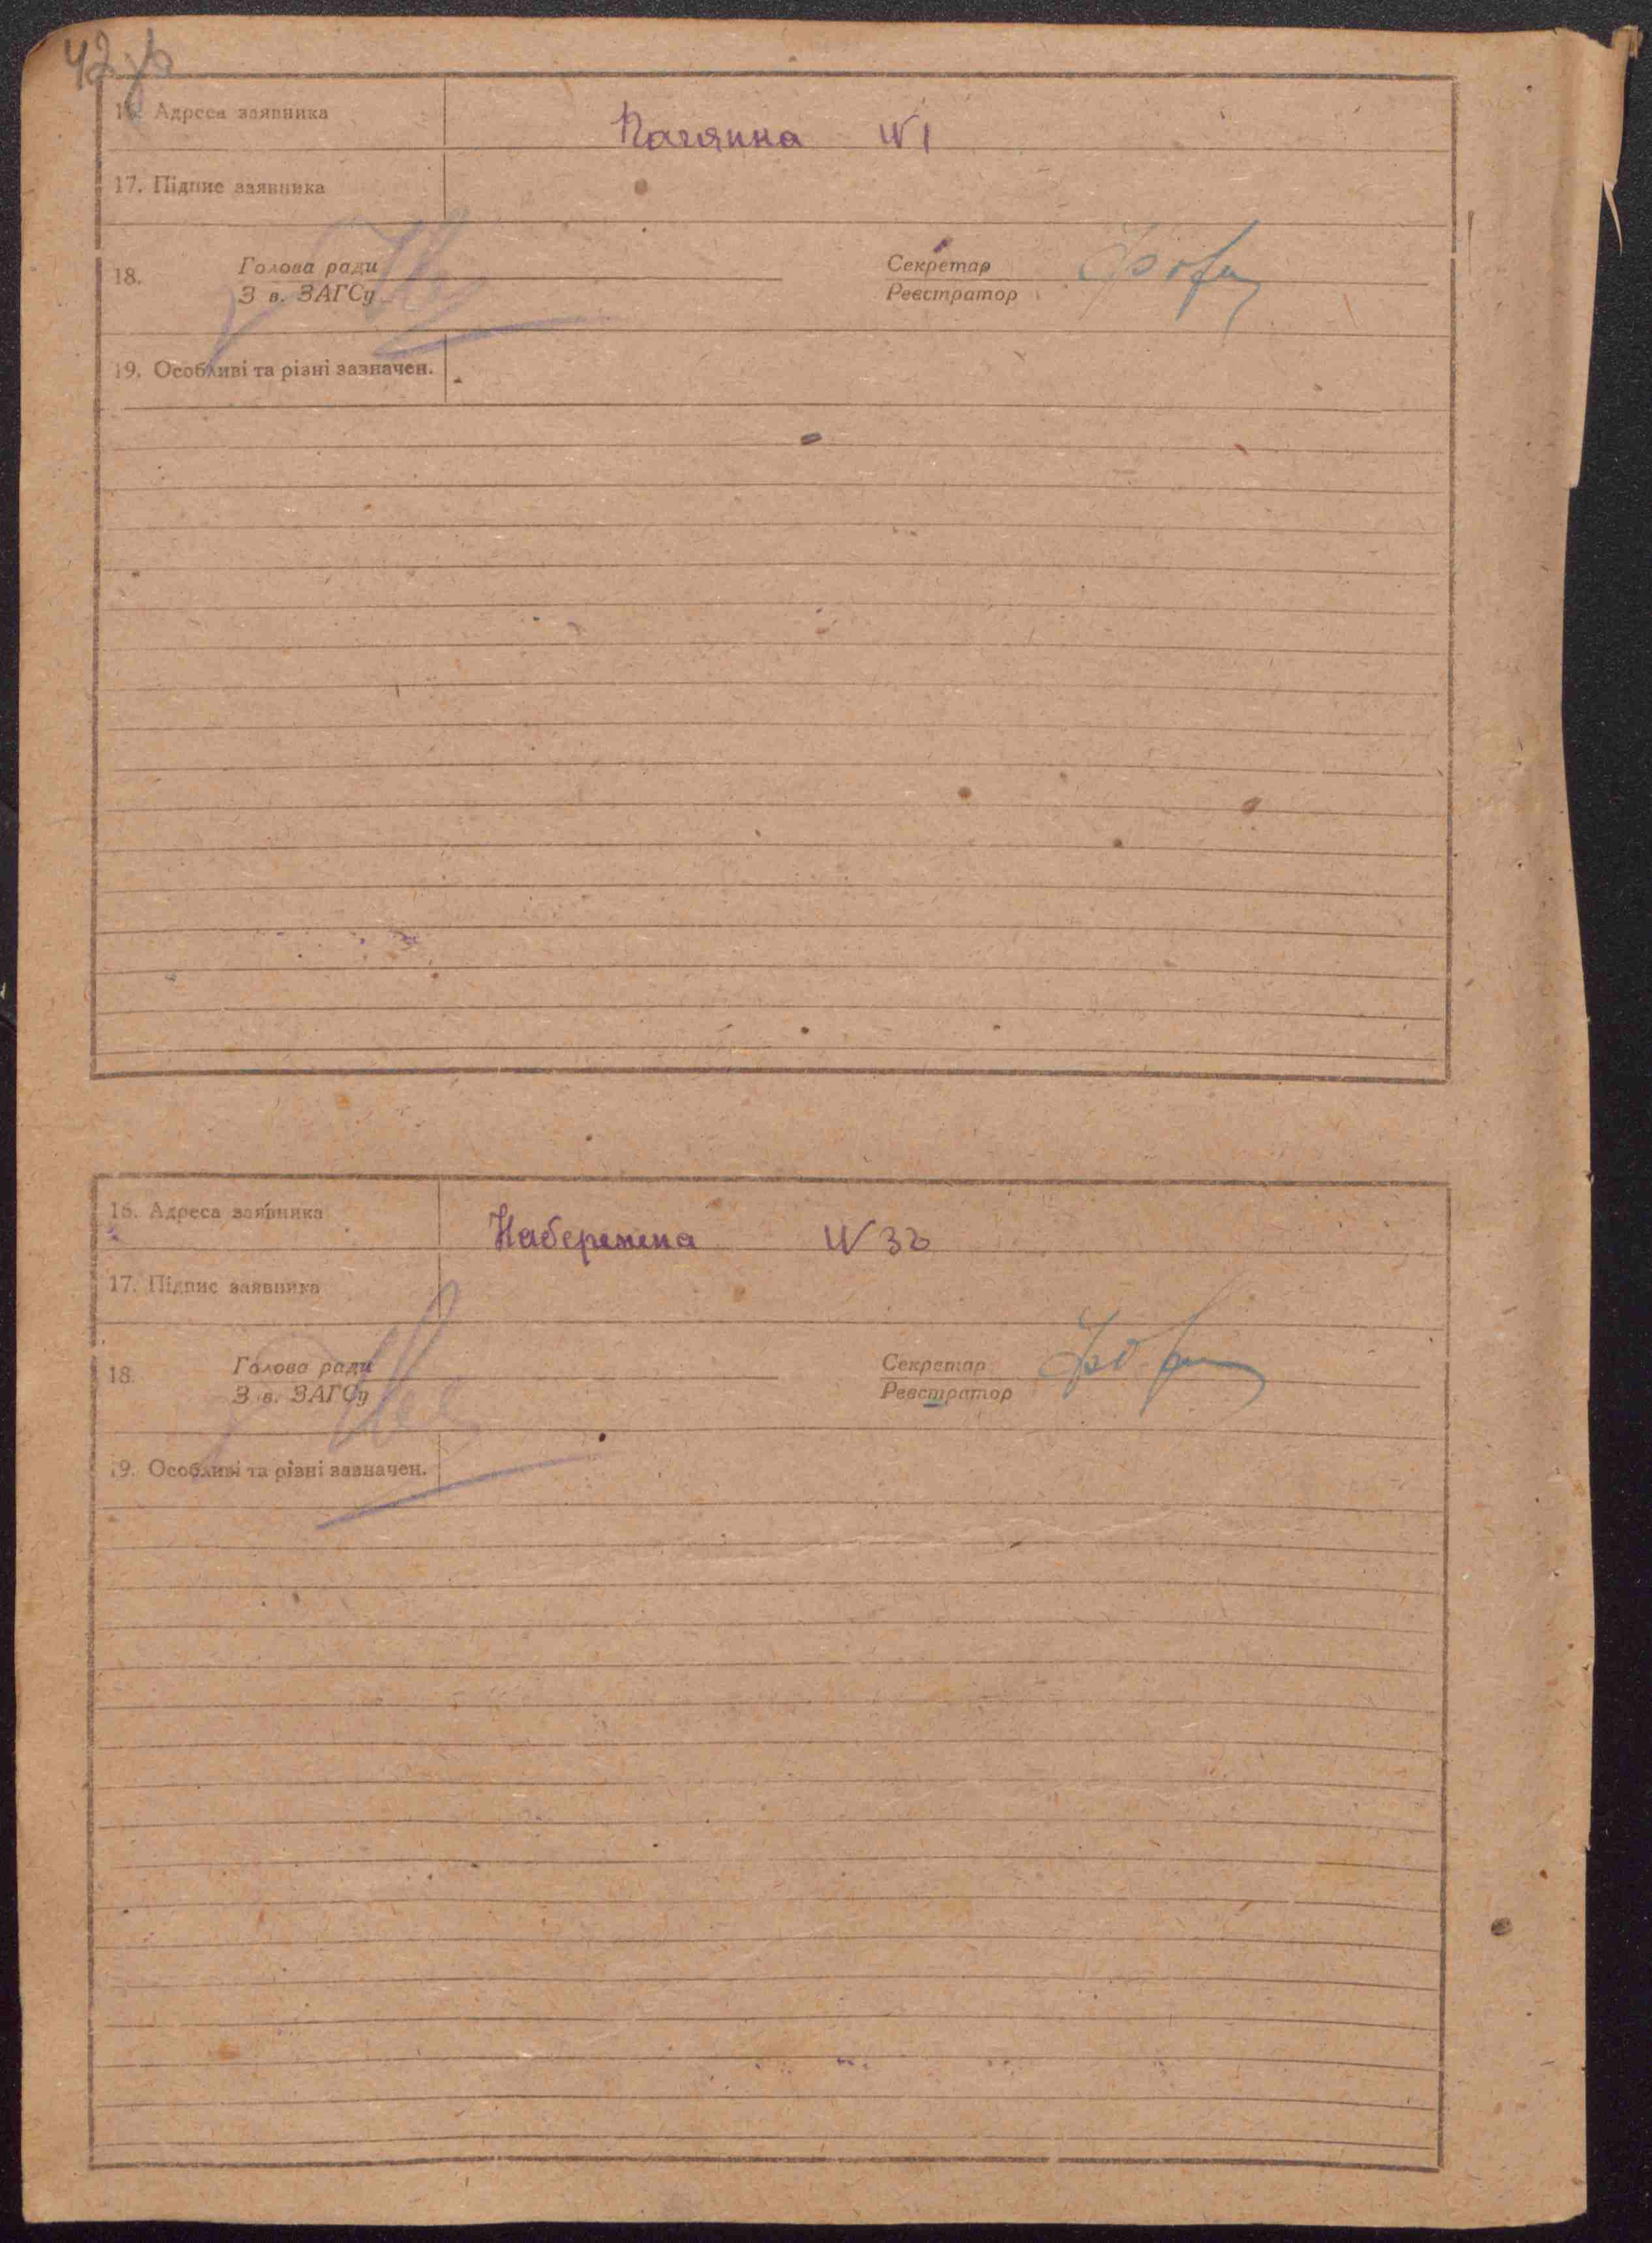 42 зв
16. Адреса заявника
N 1
17. Підпис заявника
18. Голова ради Секретар
З в. ЗАГСу Реєстратор
19. Особливі та різні зазначен.
16. Адреса заявника
Набережна N 33
17. Підпис заявника
18. Голова ради Секретар
З в. ЗАГСу Реєстратор
19. Особливі та різні зазначен.